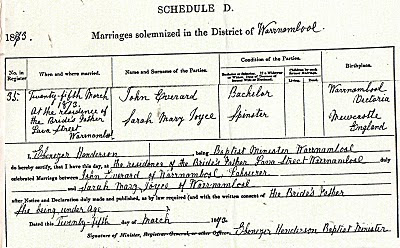 SCHEDULE D.
1873. Marriages solemnized in the District of Warrnambool.
No. in Register When and where married. Name and Surname of the Parties. Condition of the Parties. Birthplace.
Bachelor or Spinster. If a Widower or Widow, Date of Decease of Former Wife or Husband. Children by each former Marriage.
Living. Dead.
35 Twenty-fifth March John Everard Bachelor Warrnambool
1873. Victoria
At the residence of Sarah Mary Joyce Spinster Newcastle
the Bride's Father, England
Lava Street
Warrnambool
I, Ebenezer Henderson being Baptist Minister Warrnambool
do hereby certify, that I have this day, at the residence of the Bride's Father Lava Street Warrnambool duly
celebrated Marriage between John Everard of Warrnambool, Labourer
and Sarah Mary Joyce of Warrnambool
after Notice and Declaration duly made and published, as by law required (and with the written consent of the Bride's Father
she being under age
Dated this Twenty-fifth day of March 1873
Signature of Minister, Registrar-General, or other Officer, Ebenezer Henderson Baptist Minister.